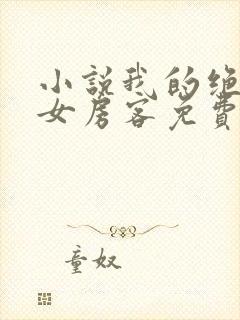 小说我的绝
女房客免費
童奴